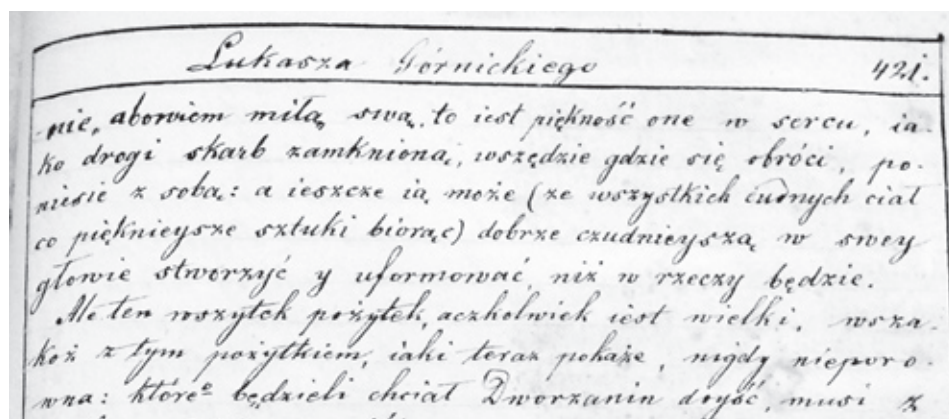 Łukasza Górnickiego 421.
-nie, abowiem miłą swą, to iest piękność one w sercu, ia-
ko drogi skarb zamknioną, wszędzie gdzie się obróci, po-
niesie z sobą: a ieszcze ią może (ze wszystkich cudnych ciał
co pięknieysze sztuki biorąc) dobrze czudnieyszą w swey
głowie stworzyć y uformować, niż w rzeczy będzie.
Ale ten wszytek pożytek, aczkolwiek iest wielki, wsza-
koż z tym pożytkiem, iaki teraz pokażę, nigdy nieporo-
wna: któreº będzieli chciał Dworzanin doyść, musi z